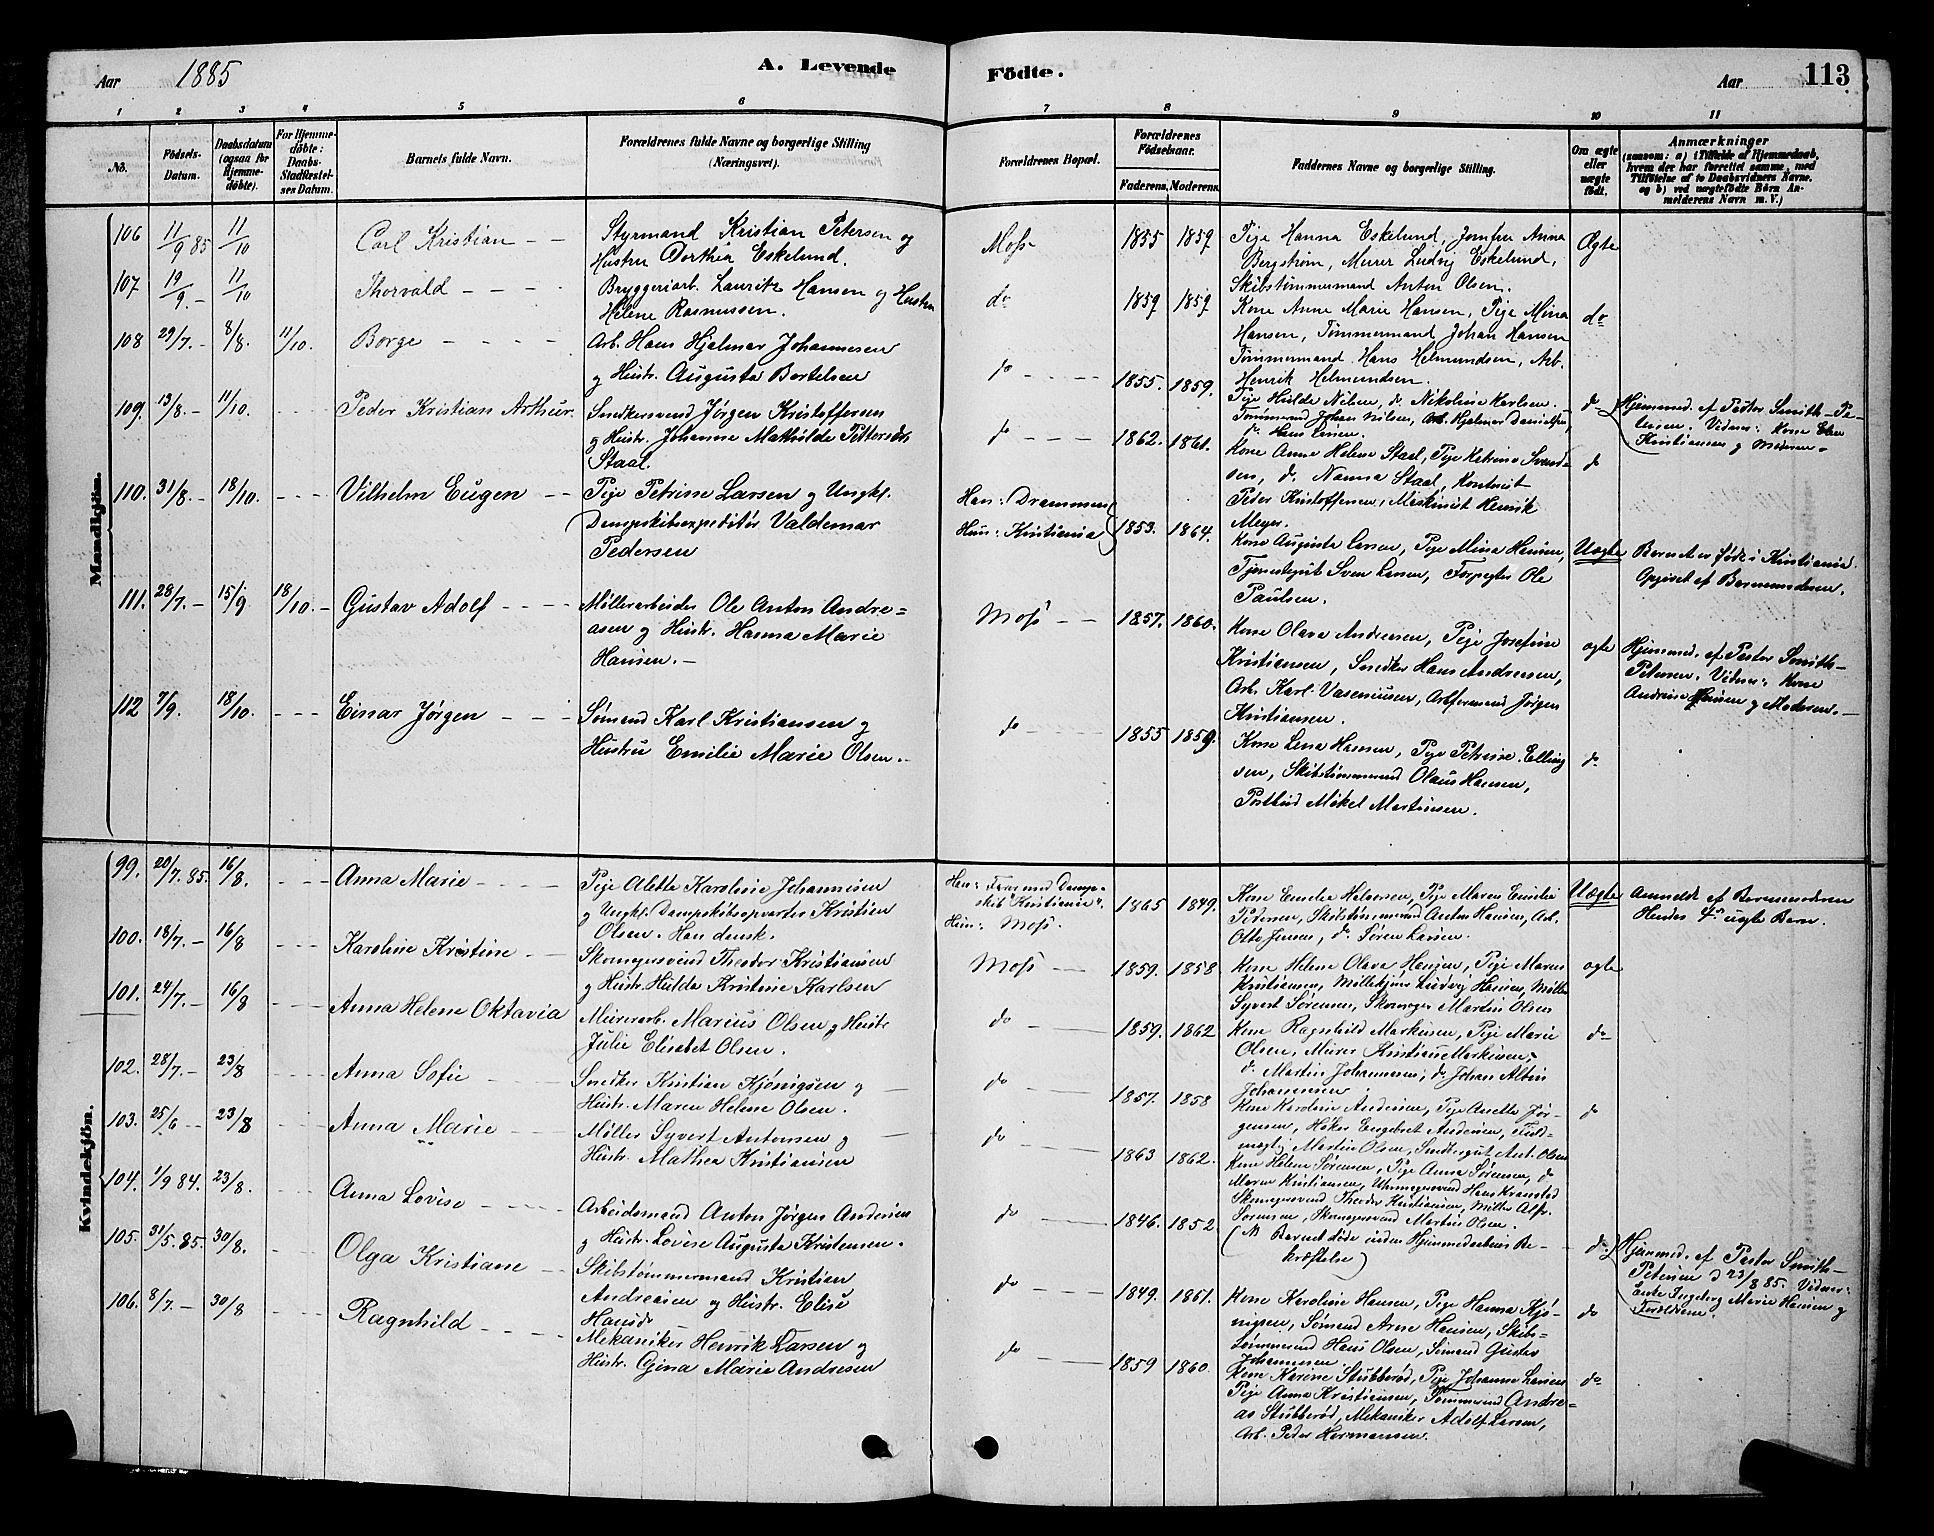 Aar 1885 A. Levende Födte. Aar 113
1 2 3 4 5 6 7 8 9 10 11
No. Födsels-Datum. Daabsdatum (ogsaa for Hjemmedöbte). For Hjemmedöbte: Daabs-Stadfæstelses Datum. Barnets fulde Navn. Forældrenes fulde Navne og borgerlige Stilling (Næringsvei). Forældrenes Bopæl. Forældrenes Födselsaar. Faderens. Moderens. Faddernes Navne og borgerlige Stilling. Om ægte eller uægte födt. Anmærkninger (saasom: a) i Tilfælde af Hjemmedaab, hvem der har forrettet samme, med Tilföielse af to Daabsvidners Navne, og b) ved uægtefödte Börn Anmelderens Navn m. V.)
Mandkjön.
106 11/9 85 11/10 Carl Kristian Styrmand Kristian Petersen og
Hustru Dorthea Eskelund. Moss 1855 1859 Pige Hanna Eskelund, Jomfru Anna
Bergstrøm, Murer Ludvig Eskelund,
Skibstømmermand Anton Olsen. Ægte
107 19/9 - 11/10 Thorvald Bryggeriarb. Lauritz Hansen og Hustru
Helene Rasmussen. do 1859 1859 Kone Anne Marie Hansen, Pige Mina
Hansen, Tømmermand Johan Hansen
Tømmermand Hans Helmundsen, Arb.
Henrik Helmundsen. do
108 29/7. - 8/8. 11/10. Borge Arb. Hans Hjalmar Johannesen
og Hustr. Augusta Bertelsen do 1855. 1859. Pige Hulda Nilsen, do Nikoline Karlsen.
Tømmermd Johan Nilsen, Arb. Hjalmar Danielsen,
do Hans Ensen. do Hjemmed. af Pastor Smith-Pe-
tersen. Vidner: Kone Elen
Kristiansen og Moderen.
109. 13/8. - 11/10. Peder Kristian Arthur. Snedkersvend Jørgen Kristoffersen
og Hustr. Johanne Mathilde Pettersdtr
Staal. do 1862. 1861. Kone Anna Helene Staal, Pige Katrine Svend-
sen, do Nanna Staal, Kontorist
Peder Kristoffersen, Maskinist Henrik
Meyer. do
110. 31/8. - 18/10. Vilhelm Eugen Pige Petrine Larsen og Ungkl.
Dampskibsexpeditør Valdemar
Pedersen Han: Drammen
Hun: Kristiania 1853. 1864. Kone Augusta Larsen, Pige Mina Hansen,
Tjenestegut Sven Larsen, Forpagter Ole
Paulsen. Uægte Barnet er født i Kristiania.
Opgivet af Barnemoderen.
111. 28/7. - 15/9 18/10. Gustav Adolf Møllerarbeider Ole Anton Andre-
asen og Hustr. Hanna Marie
Hansen. Moss 1857. 1860. Kone Olava Andreasen, Pige Josefine
Kristiansen, Snedker Hans Andreasen,
Arb. Karl Vaseniusen, Arbformand Jørgen
Kristiansen. ægte Hjemmed. af Pastor Smith-
Petersen. Vidner: Kone
Andrine Hansen og Moderen.
112 7/9. 18/10. Einar Jørgen Sømand Karl Kristiansen og
Hustru Emilie Marie Olsen. do 1855 1859. Kone Lena Hansen, Pige Petrine Elling
sen, Skibstømmermd Olaus Hansen,
Postbud Mikel Martinsen. do
Kvindekjön.
99. 20/7. 85. 16/8. Anna Marie Pige Alette Karoline Johannesen
og Ungkl. Dampskibsopvarter Kristian
Olsen. Han dansk. Han: Farer med Damp-
skib "Kristiania".
Hun: Moss. 1865 1849. Kone Emilie Halvorsen, Pige Maren Emilie
Pedersen, Skibstømmermd Anton Hansen, Arb.
Otto Jensen, do Søren Larsen. Uægte Anmeldt af Barnemoderen
Hendes 4de uægte Barn.
100. 18/7. - 16/8 Karoline Kristine Skomagersvend Theodor Kristiansen
og Hustr. Hulda Kristine Karlsen Moss 1859. 1858 Kone Helene Olava Hansen, Pige Maren
Kristiansen, Møllekjører Ludvig Hansen, Møller
Syvert Sørensen, Skomager Martin Olsen ægte
101. 24/7. - 16/8 Anna Helene Oktavia Murerarb. Marius Olsen og Hustr
Julie Elisabet Olsen. do 1859. 1862 Kone Ragnhild Markusen, Pige Marie
Olsen, Murer Kristian Markusen,
do Martin Johannesen, do Johan Albin
Johannesen. do
102. 28/7. - 23/8 Anna Sofie Snedker Kristian Kjønigsen og
Hustr. Maren Helene Olsen. do 1857. 1858 Kone Karoline Andersen, Pige Anette Jør-
gensen, Høker Engebret Andersen, Fuld-
mægtig Martin Olsen, Snedkergut Ant. Olsen do
103. 25/6 - 23/8 Anna Marie Møller Syvert Antonsen og
Hustr. Mathea Kristiansen do 1863 1862. Kone Helene Sørensen, Pige Anna Sørensen, do
Maren Kristiansen, Uhrmagersvend Hans Kranstad
Skomagersvend Theodor Kristiansen, Møller Alf.
Sørensen, Skomagersvend Martin Olsen.
104. 1/9 84. 23/8. Anna Lovise Arbeidsmand Anton Jørgen Andersen
og Hustr. Lovise Augusta Kristensen. do 1846. 1852. (NB Barnet døde inden Hjemmedaabens Be-
kræftelse) do. Hjemmed. af Pastor Smith-
Petersen d 23/8 85. Vidner:
Enke Ingeborg Marie Hansen og
Forældrene.
105. 31/5. 85. 30/8. Olga Kristiane Skibstømmermand Kristian
Andreasen og Hustr. Elise
Hansdr do 1849. 1861. Kone Karoline Hansen, Pige Hanna Kjø-
nigsen, Sømand Arne Hansen, Skibs-
tømmermd Hans Olsen, Sømand Gustav
Johannesen do
106. 8/7. - 30/8 Ragnhild Mekaniker Henrik Larsen og
Hustr. Gina Marie Andresen do 1859 1860. Kone Karine Stubberød, Pige Johanne Larsen
Pige Anna Kristiansen, Tømmermd Andre-
as Stubberød, Mekaniker Adolf Larsen,
Arb. Peder Hermansen. do